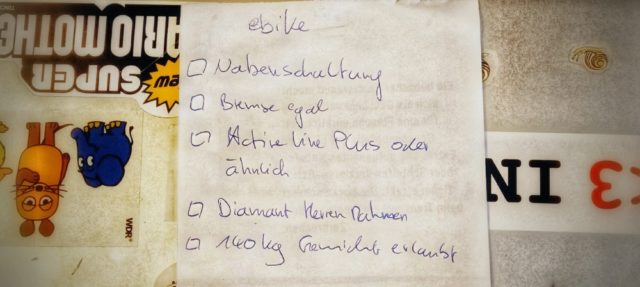 ebike
☐ Nabenschaltung
☐ Bremse egal
☐ Active Line Plus oder
ähnlich
☐ Diamant Herren Rahmen
☐ 140kg Gewicht erlaubt
SUPER
MARIO MOTHE
ma
WDR
<3 IN